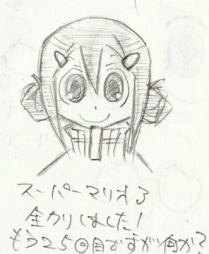 スーパーマリオ3
全クリしました!
もう25回目ですが何か?